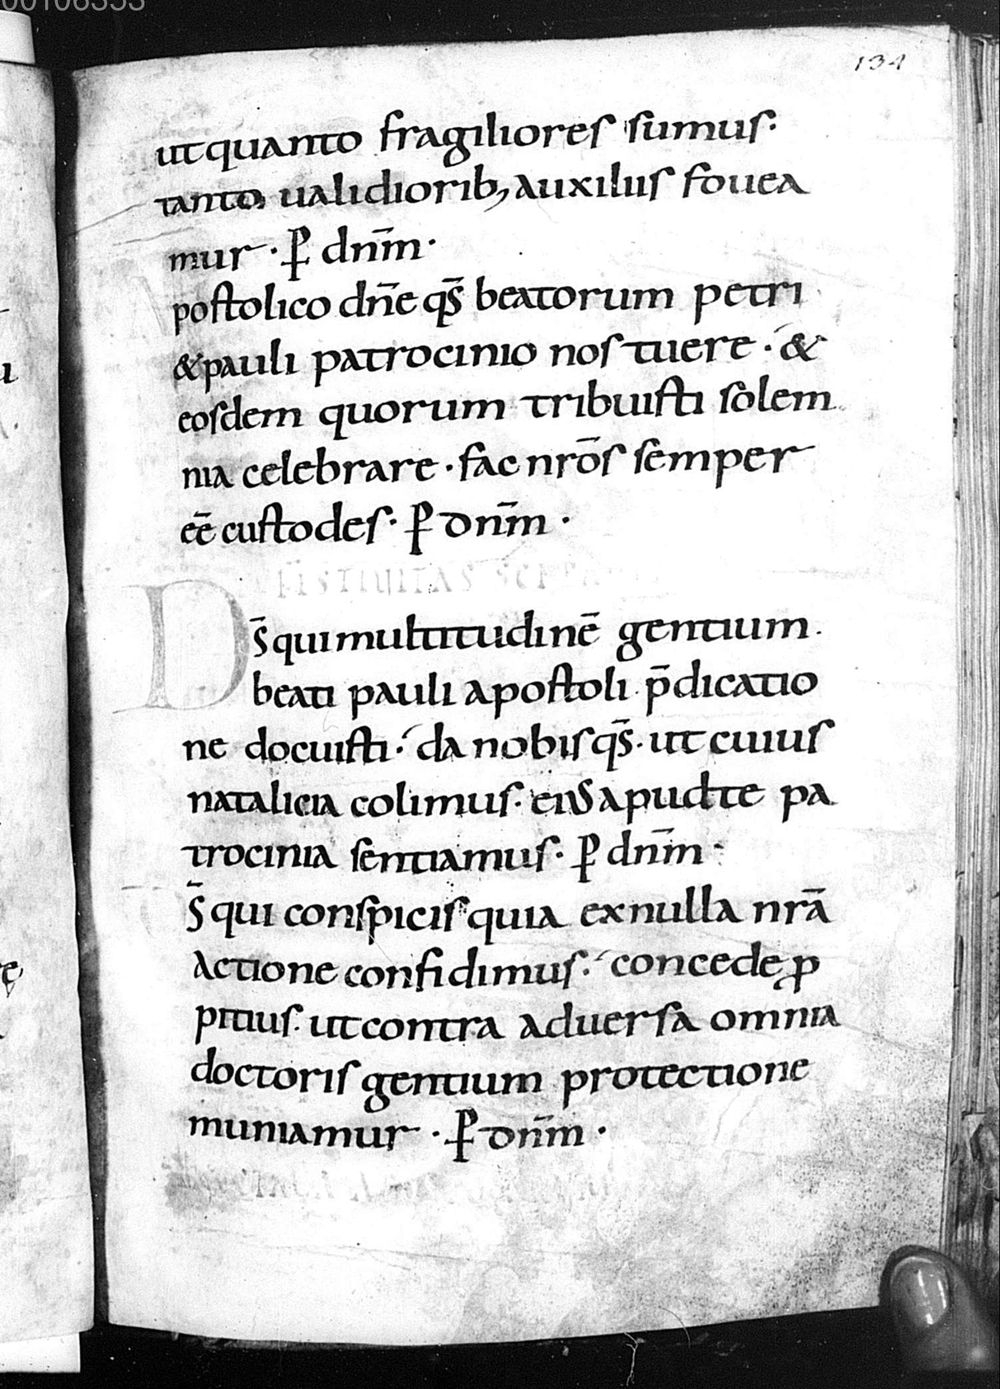 00106353
134
ut quanto fragiliores sumus·
tanto, ualidiorib; auxiliis fouea
mur · p̄ dnm̄ ·
postolico dn̄e qs̄ beatorum petri
& pauli patrocinio nos tuere · &
eosdem quorum tribuisti solem
nia celebrare · fac nrōs semper
eē custodes · p̄ dnm̄ ·
FESTIUITAS SCI PA
D
s̄ qui multitudinē gentium·
beati pauli apostoli p̄dicatio
ne docuisti · da nobis qs̄ · ut cuius
natalicia colimus · eius apud te pa
trocinia sentiamus · p̄ dnm̄ ·
s̄ qui conspicis quia ex nulla nrā
actione confidimus · concede ꝓ
pitius · ut contra aduersa omnia
doctoris gentium protectione
muniamur · p̄ dnm̄ ·